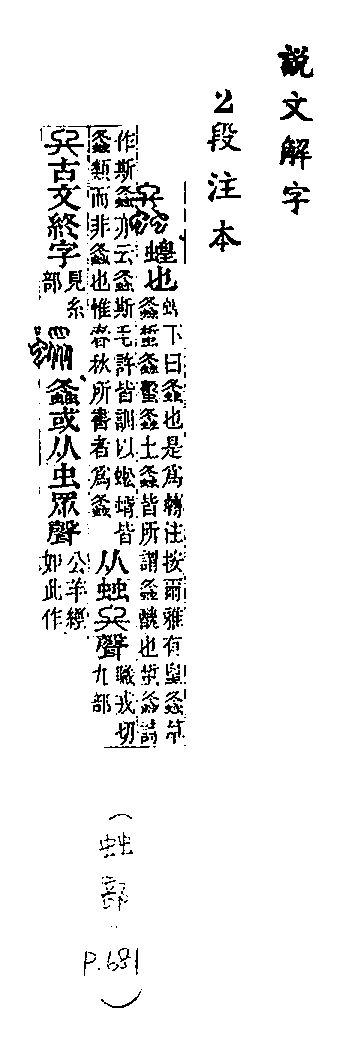 説文解字
2段注本
螽 蝗也 蝗下曰螽也是爲轉注按爾雅有𨸏螽艸
螽蜤螽蟿螽土螽皆所謂螽醜也𨸏螽詩
作斯螽亦云螽斯毛許皆訓以蚣蝑皆
螽類而非螽也惟春秋所書者爲螽 从䖵𠔾聲 職戎切九部
𠔾古文終字 見糸部 螽或从虫眾聲 公羊經如此作
(䖵部 P.681)